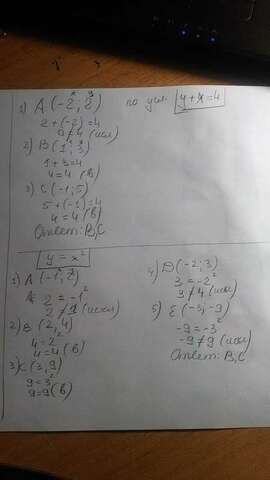 1) A (-2; 2) по усл. y+x=4
2+(-2)=4
0≠4 (исл)
2) B (1; 3)
1+3=4
4=4 (в)
3) C (-1; 5)
5+(-1)=4
4=4 (в)
Ответ: B, C
y = x²
1) A (-1; 2)
2 = -1²
2 ≠
2) B (2; 4)
4=2²
4=4 (в)
3) C (3, 9)
9=3²
9=9 (в)
4) D (-2; 3)
3 = -2²
3 ≠ 4
5) E (-3; -9)
-9 = -3²
-9 ≠ 9
Ответ: B, C